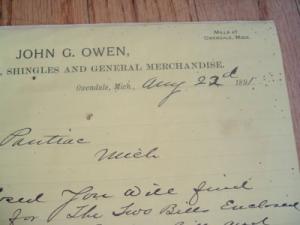 MILLS AT
OWENDALE, MICH.
JOHN G. OWEN,
, SHINGLES AND GENERAL MERCHANDISE.
Owendale, Mich., Aug 22d 1891
Pontiac
Mich
osed You will find
for The Two Bills Enclosed